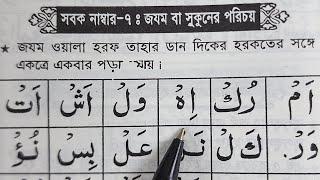 সবক নাম্বার-৭ ঃ জযম বা সুকুনের পরিচয়
★ জযম ওয়ালা হরফ তাহার ডান দিকের হরকতের সঙ্গে
একত্রে একবার পড়া যায়।
اَمْ رُكْ اِهْ وَلْ اَشْ اَتْ
وَرْ كَلْ عَلْ بِسْ نُؤْ